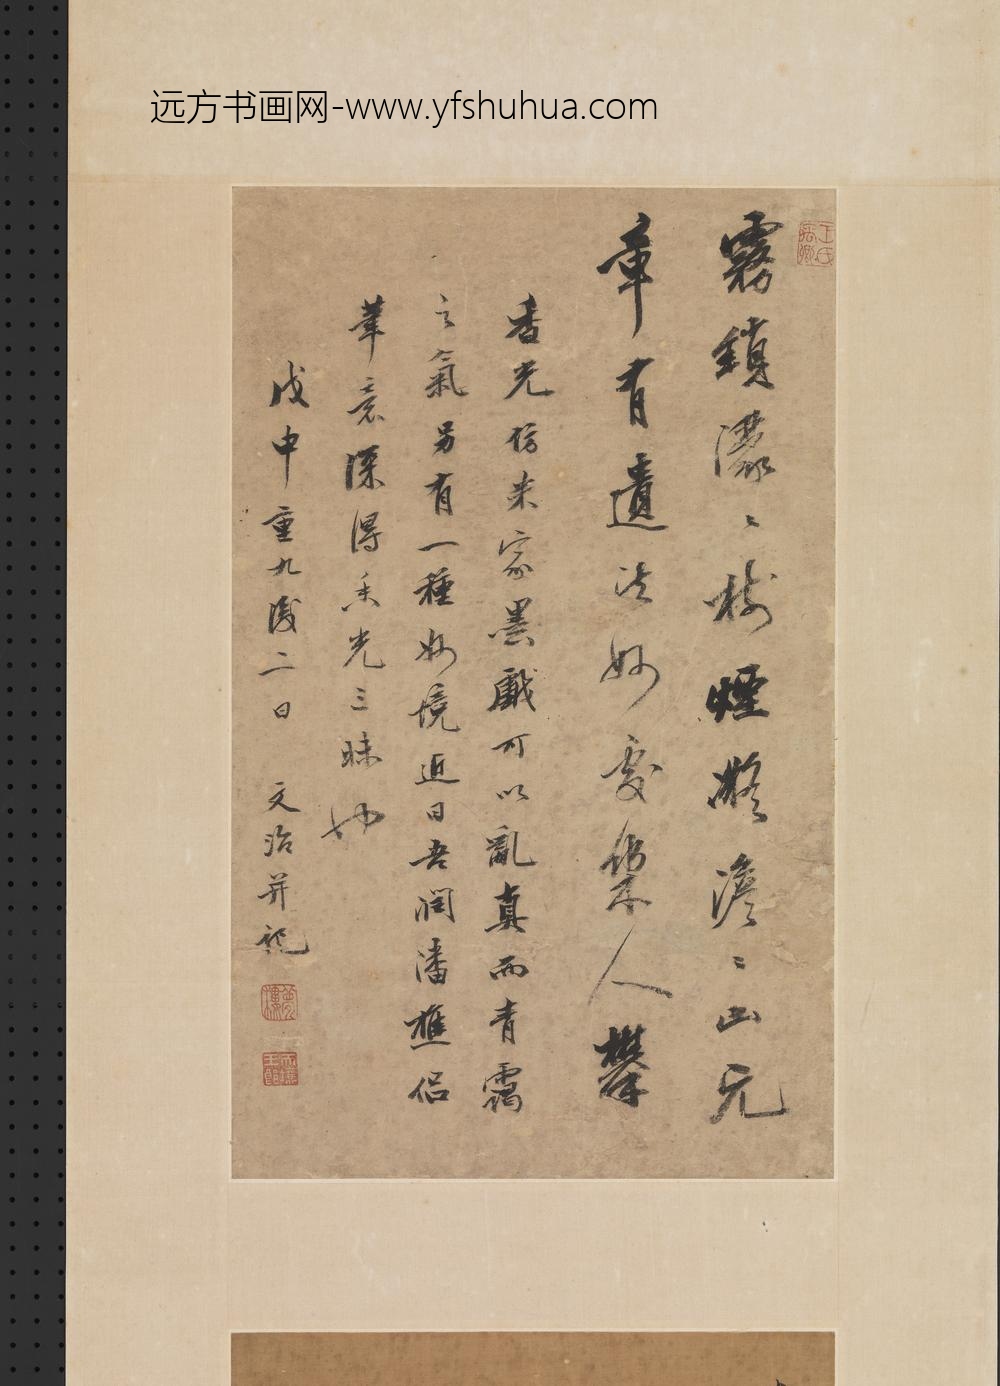 远方书画网-www.yfshuhua.com
霧鎖濛〻樹煙凝澹〻山元
章有遺法妙處幾人攀
香光仿米家墨戲可以亂真而青靄
之氣另有一種妙境近日吾潤潘樵侶
筆意深得香光三昧也
戊申重九後二日 文治并記